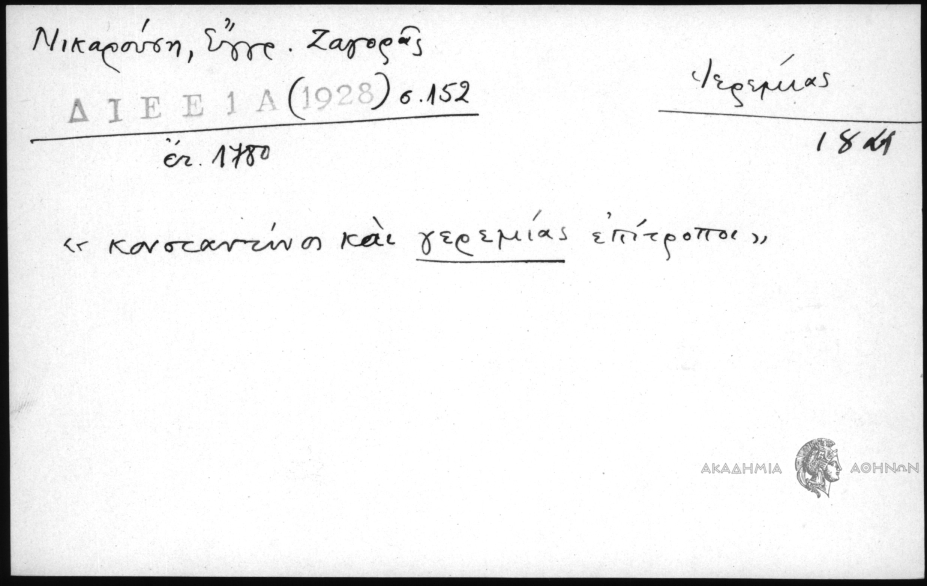 Νικαρούση, Ἔγγρ. Ζαγορᾶς
ΔΙΕΕ 1Α (1928) σ. 152
ἔτ. 1780
Ἱερεμίας
« κονσταντίνοσ καὶ γερεμίας ἐπίτροποι »
ΑΚΑΔΗΜΙΑ ΑΘΗΝΩΝ